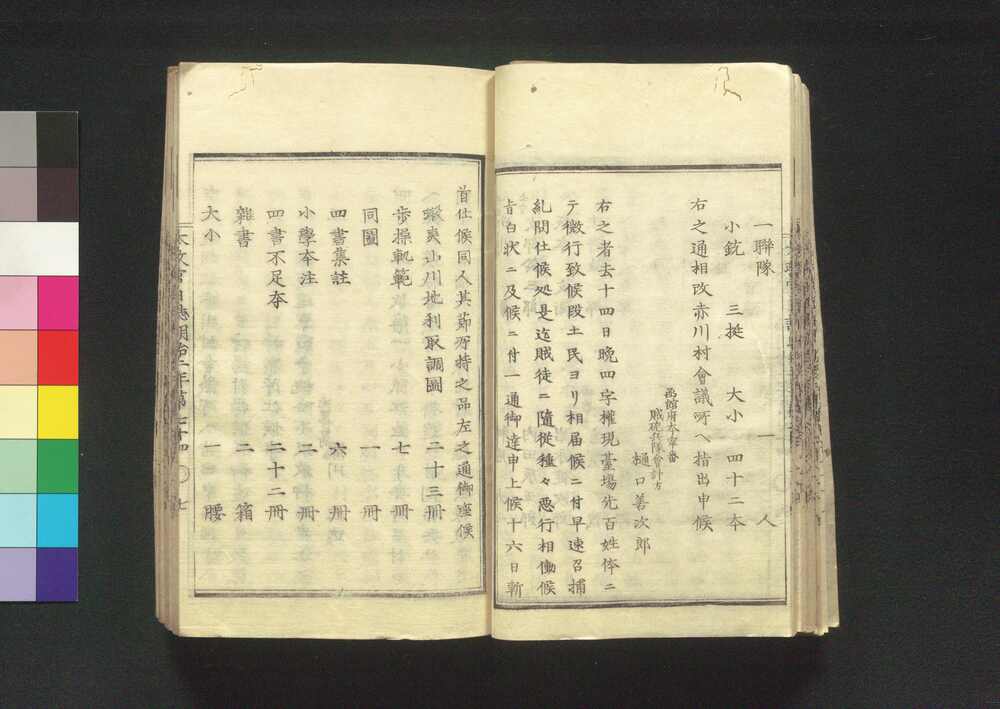 一聯隊　一人
小銃　三挺　大小　四十二本
右之通相改赤川村會議所へ指出申候
函館府本章番
賊砲兵隊會計方
樋口善次郎
右之者去十四日晩四字權現臺場先百姓体ニ
テ微行致候段土民ヨリ相届候ニ付早速召捕
糺問仕候処是迄賊徒ニ隨從種々惡行相働候
旨白状ニ及候ニ付一通御達申上候十六日斬
首仕候同人其節所持之品左之通御座候
蝦夷山川地利取調圖　二十三冊
歩操軌範　七冊
同圖　一冊
四書集註　六冊
小學本注　二冊
四書不足本　二十二冊
雜書　二箱
大小　一腰
太政官日誌明治二年第七十四　〇　七